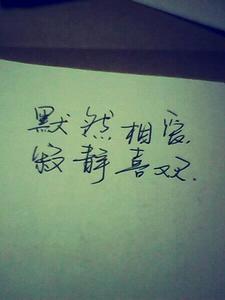 默然相爱，
寂静喜欢.